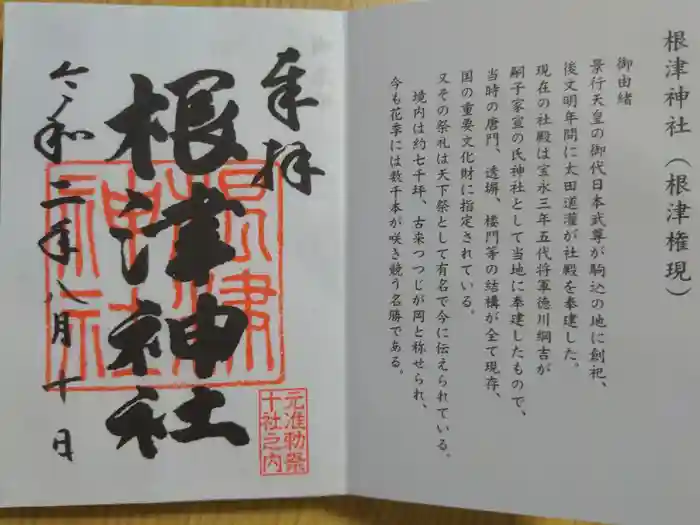 根津神社（根津権現）
御由緒
景行天皇の御代日本武尊が駒込の地に創祀、
後文明年間に太田道灌が社殿を奉建した。
現在の社殿は宝永三年五代将軍徳川綱吉が
嗣子家宣の氏神社として当地に奉建したもので、
当時の唐門、透塀、楼門等の結構が全て現存、
国の重要文化財に指定されている。
又その祭礼は天下祭として有名で今に伝えられている。
境内は約七千坪、古来つつじが岡と称せられ、
今も花季には数千本が咲き競う名勝である。
奉拝
根津神社
令和二年八月十日
根津
神社
元准勅祭
十社之内